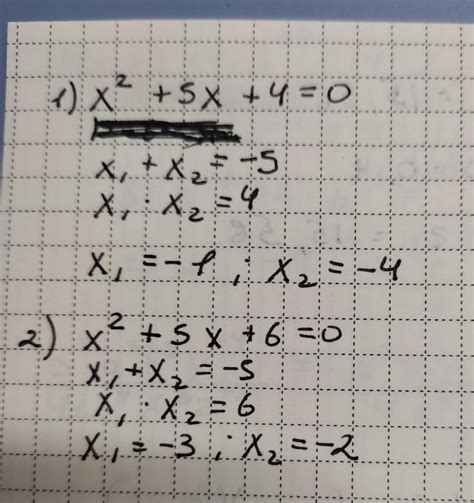 1) x² + 5x + 4 = 0
x₁ + x₂ = -5
x₁ · x₂ = 4
x₁ = -1 ; x₂ = -4
2) x² + 5x + 6 = 0
x₁ + x₂ = -5
x₁ · x₂ = 6
x₁ = -3 ; x₂ = -2